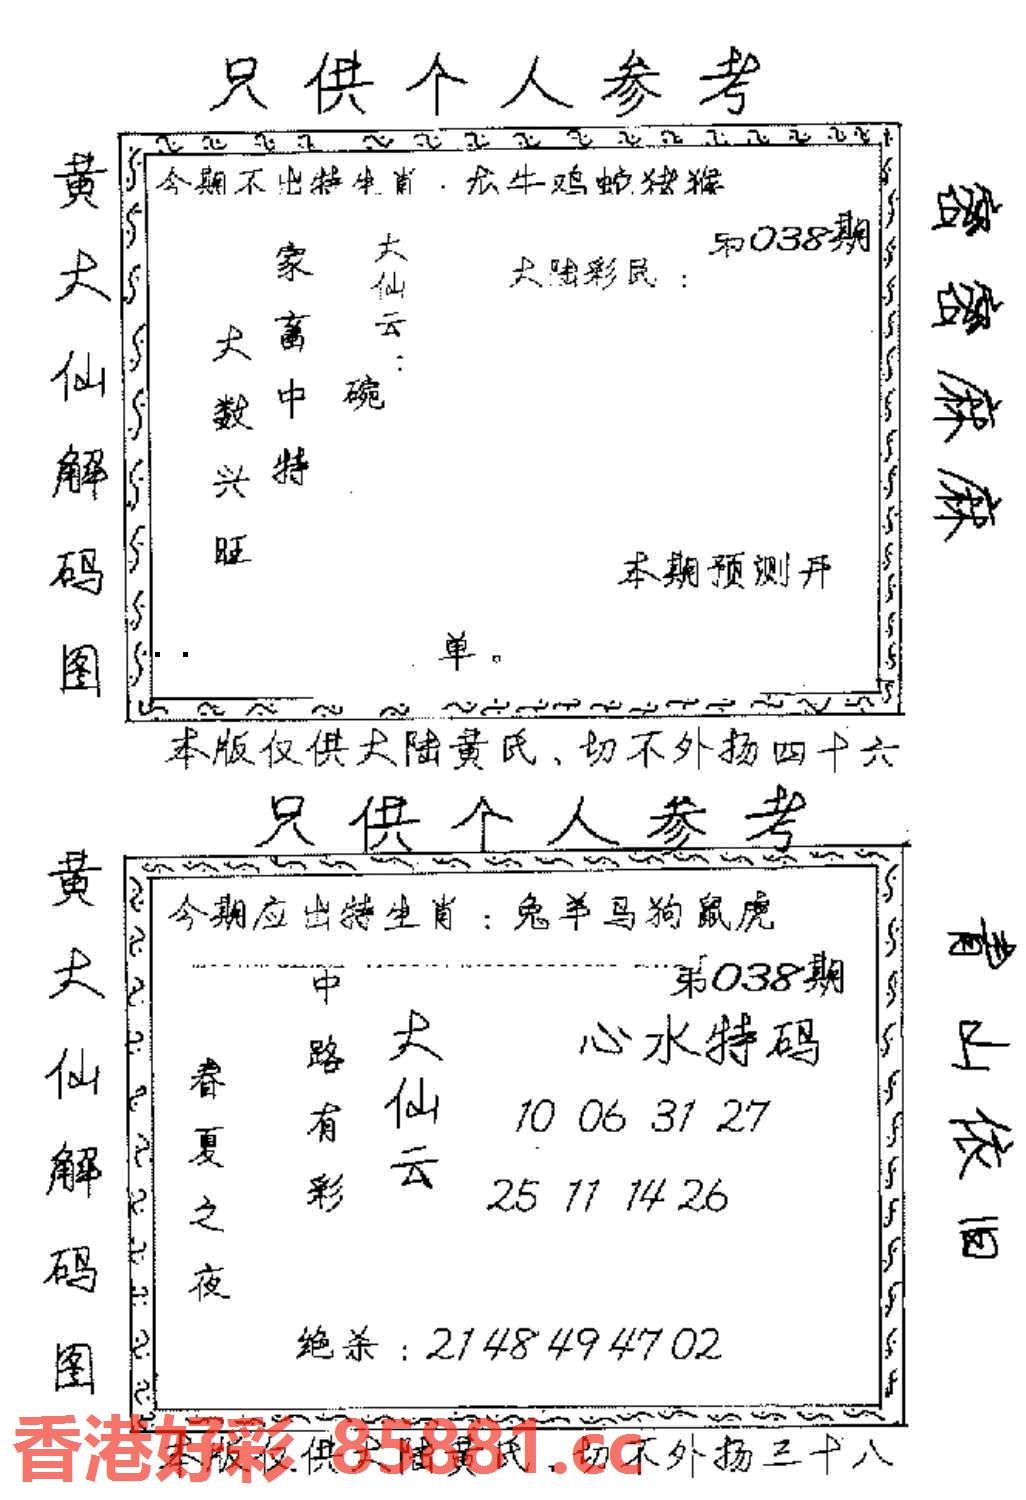 只供个人参考
黄大仙解码图
今期不出特生肖．龙牛鸡蛇猪猴
第038期
大陆彩民：
大仙云：
碗
家畜中特
大数兴旺
本期预测开
单。
密密麻麻
本版仅供大陆黄氏、切不外扬四十六
只供个人参考
黄大仙解码图
今期应出特生肖：兔羊马狗鼠虎
第038期
心水特码
10 06 31 27
25 11 14 26
大仙云
中路有彩
春夏之夜
绝杀：21 48 49 47 02
青山依旧
香港好彩 85881.cc
本版仅供大陆黄氏、切不外扬三十八